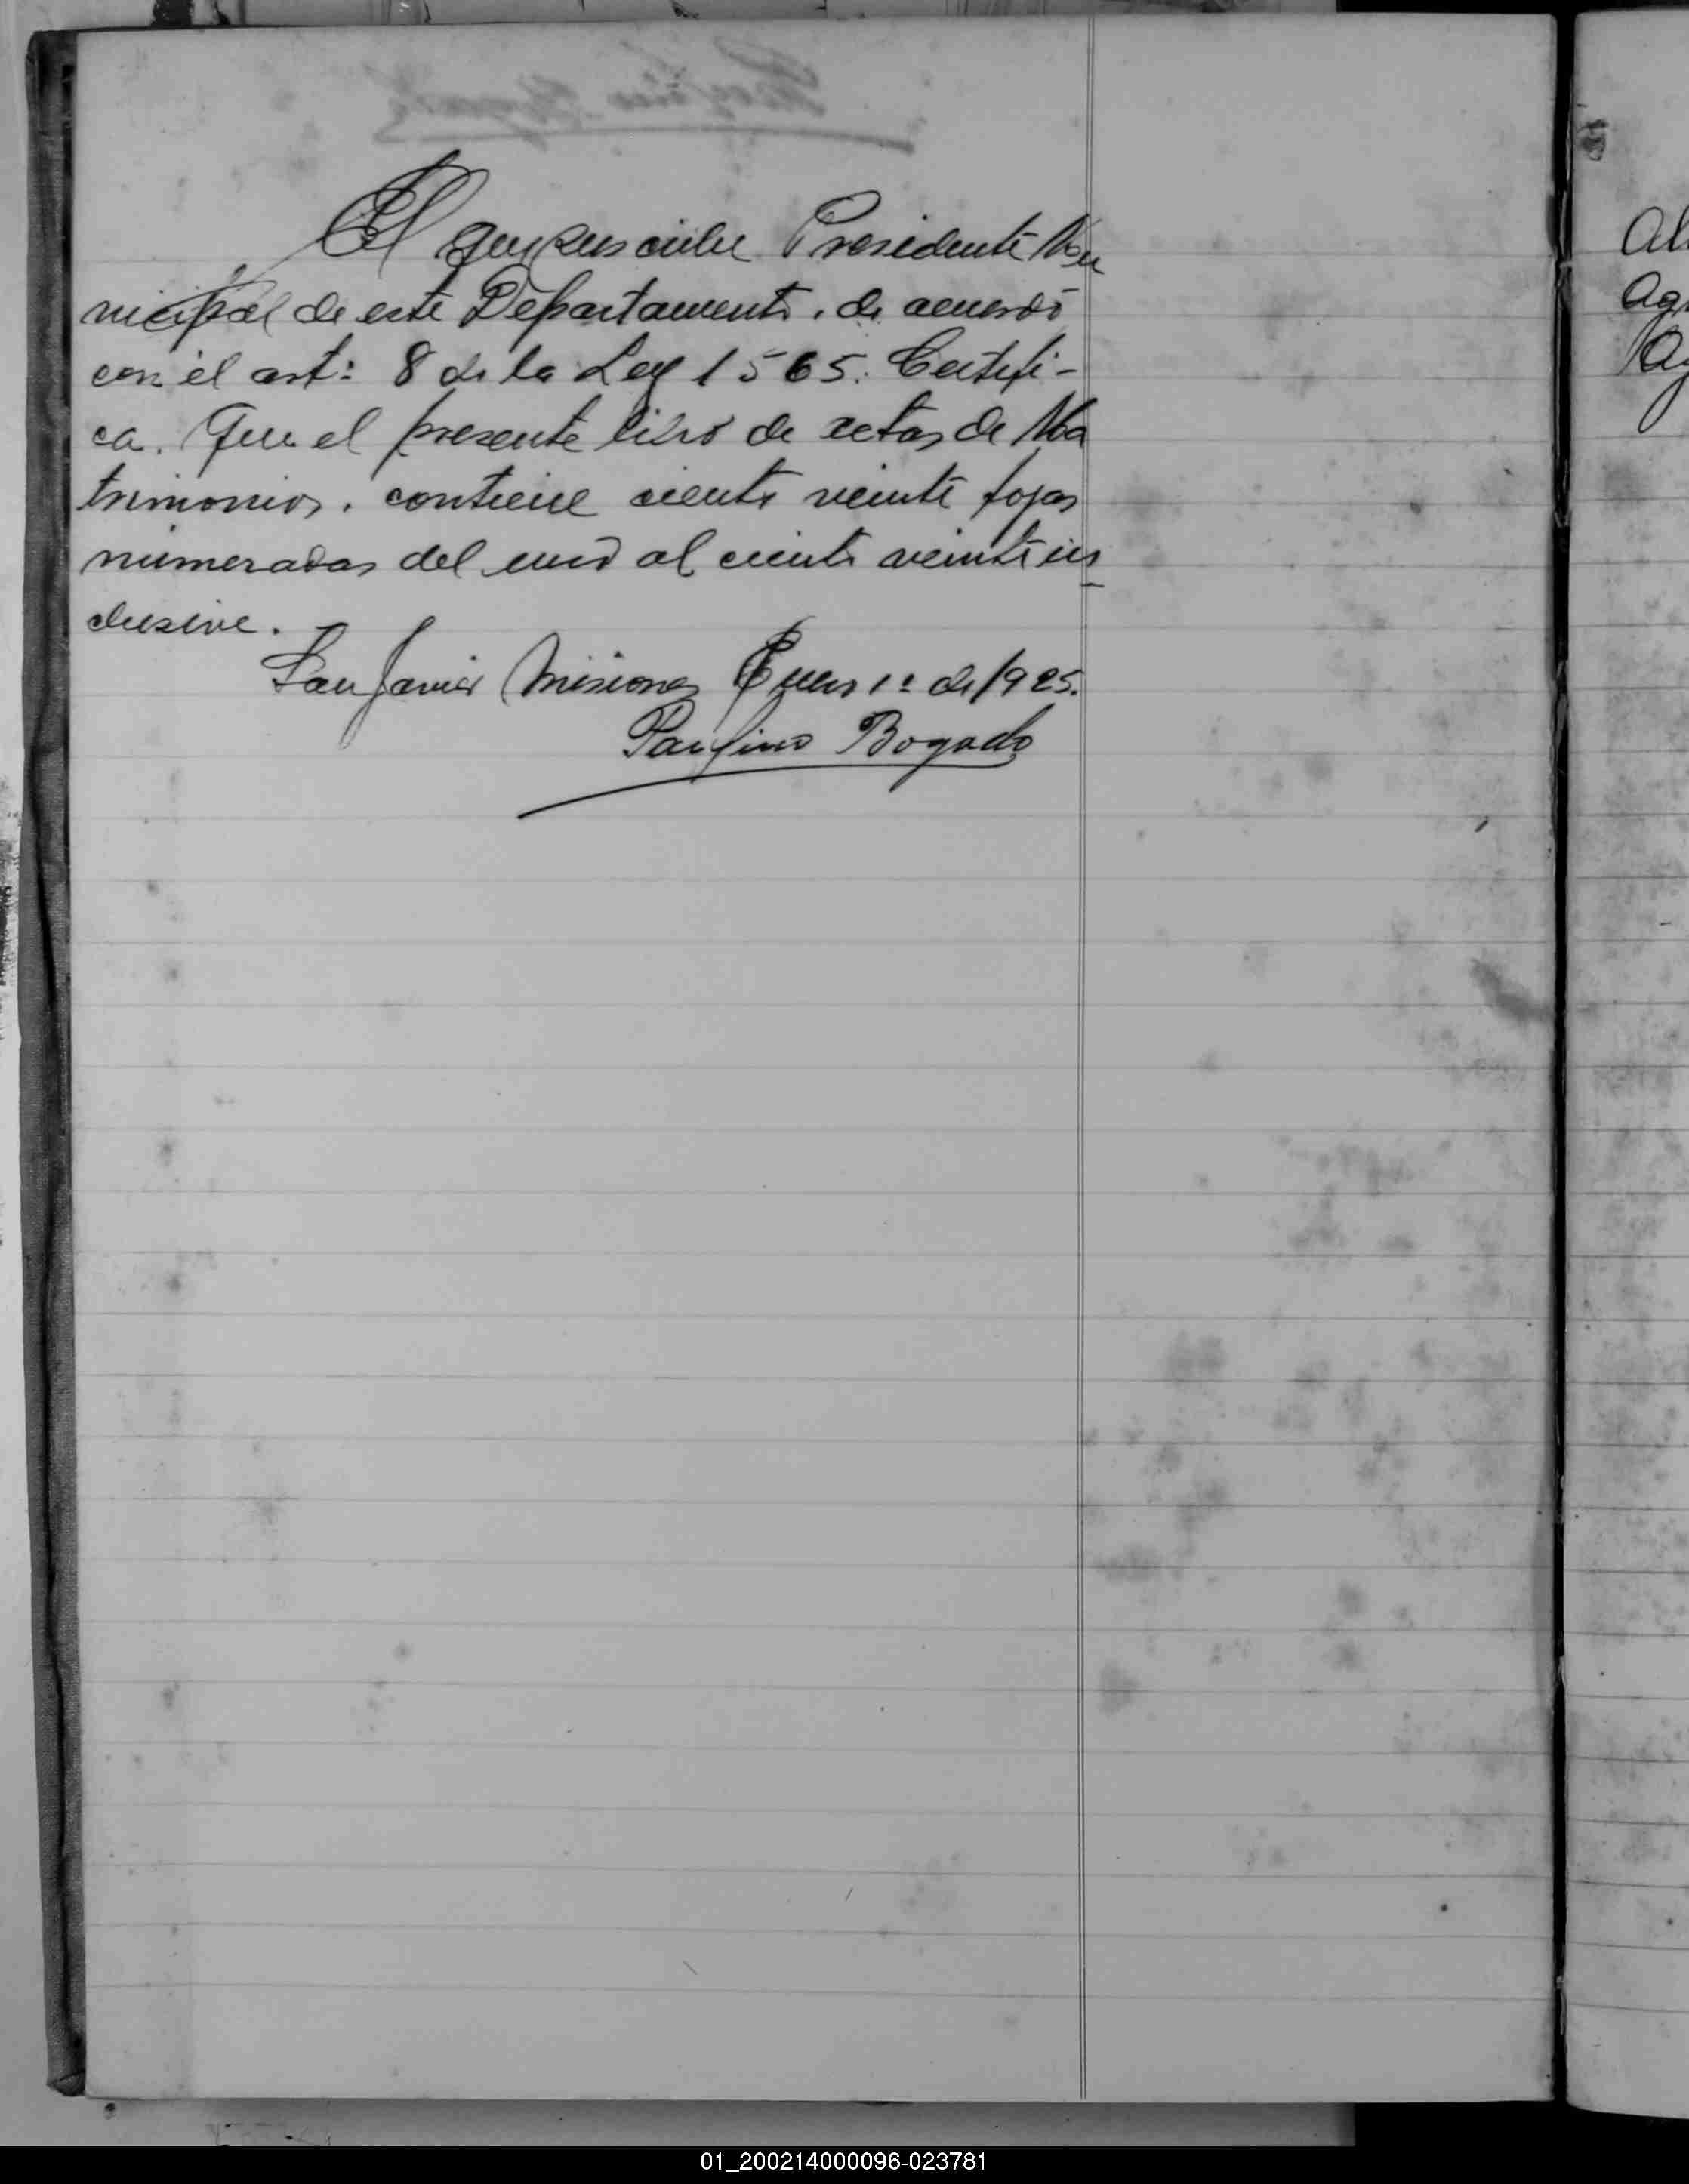 El que suscribe Presidente Mu
nicipal de este Departamento, de acuerdo
con el art: 8 de la Ley 1565. Certifi-
ca. Que el presente libro de actas de Ma
trimonios, contiene ciento veinte fojas
numeradas del uno al ciento veinte in
clusive.
San Javier Misiones Enero 1º de 1925.
Paulino Bogado
Al
Ag
Ag
01_200214000096-023781